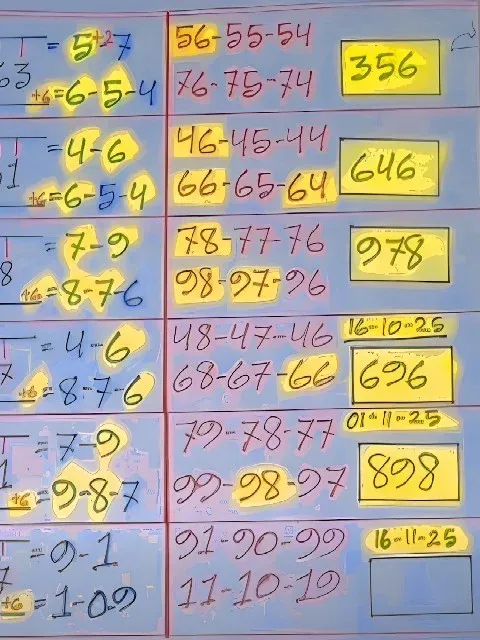 = 5+2 7
56-55-54
356
53
+6 = 6-5-4
76-75-74
= 4-6
46-45-44
646
1
+6 = 6-5-4
66-65-64
= 7-9
78-77-76
978
8
+6 = 8-7-6
98-97-96
16-10-25
= 4-6
48-47-46
696
7
+6 = 8-7-6
68-67-66
01-11-25
= 7-9
79-78-77
898
1
+6 = 9-8-7
99-98-97
16-11-25
= 9-1
91-90-99
7
+6 = 1-0-9
11-10-19